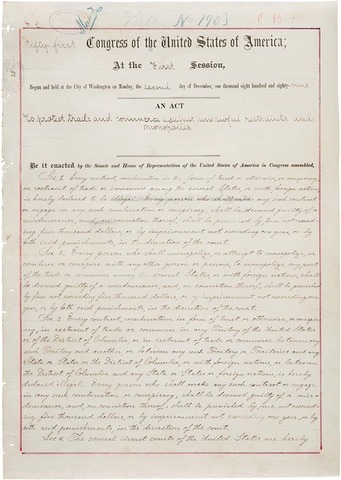 Public No 190
Fifty-first Congress of the United States of America;
At the First Session,
Begun and held at the City of Washington on Monday, the second day of December, one thousand eight hundred and eighty-nine.
AN ACT
To protect trade and commerce against unlawful restraints and
monopolies.
Be it enacted by the Senate and House of Representatives of the United States of America in Congress assembled,
Sec. 1. Every contract, combination in the form of trust or otherwise, or conspiracy,
in restraint of trade or commerce among the several States, or with foreign nations,
is hereby declared to be illegal. Every person who shall make any such contract
or engage in any such combination or conspiracy, shall be deemed guilty of a
misdemeanor, and, on conviction thereof, shall be punished by fine not exceed-
ing five thousand dollars, or by imprisonment not exceeding one year, or by
both said punishments, in the discretion of the court.
Sec. 2. Every person who shall monopolize, or attempt to monopolize, or
combine or conspire with any other person or persons, to monopolize any part
of the trade or commerce among the several States, or with foreign nations, shall
be deemed guilty of a misdemeanor, and, on conviction thereof, shall be punished
by fine not exceeding five thousand dollars, or by imprisonment not exceeding one
year, or by both said punishments, in the discretion of the court.
Sec. 3. Every contract, combination in form of trust or otherwise, or conspira-
cy, in restraint of trade or commerce in any Territory of the United States
or of the District of Columbia, or in restraint of trade or commerce between any
such Territory and another, or between any such Territory or Territories and any
State or States or the District of Columbia, or with foreign nations, or between
the District of Columbia and any State or States or foreign nations, is hereby
declared illegal. Every person who shall make any such contract or engage
in any such combination or conspiracy, shall be deemed guilty of a mis-
demeanor, and, on conviction thereof, shall be punished by fine not exceed-
ing five thousand dollars, or by imprisonment not exceeding one year, or by
both said punishments, in the discretion of the court.
Sec. 4. The several circuit courts of the United States are hereby